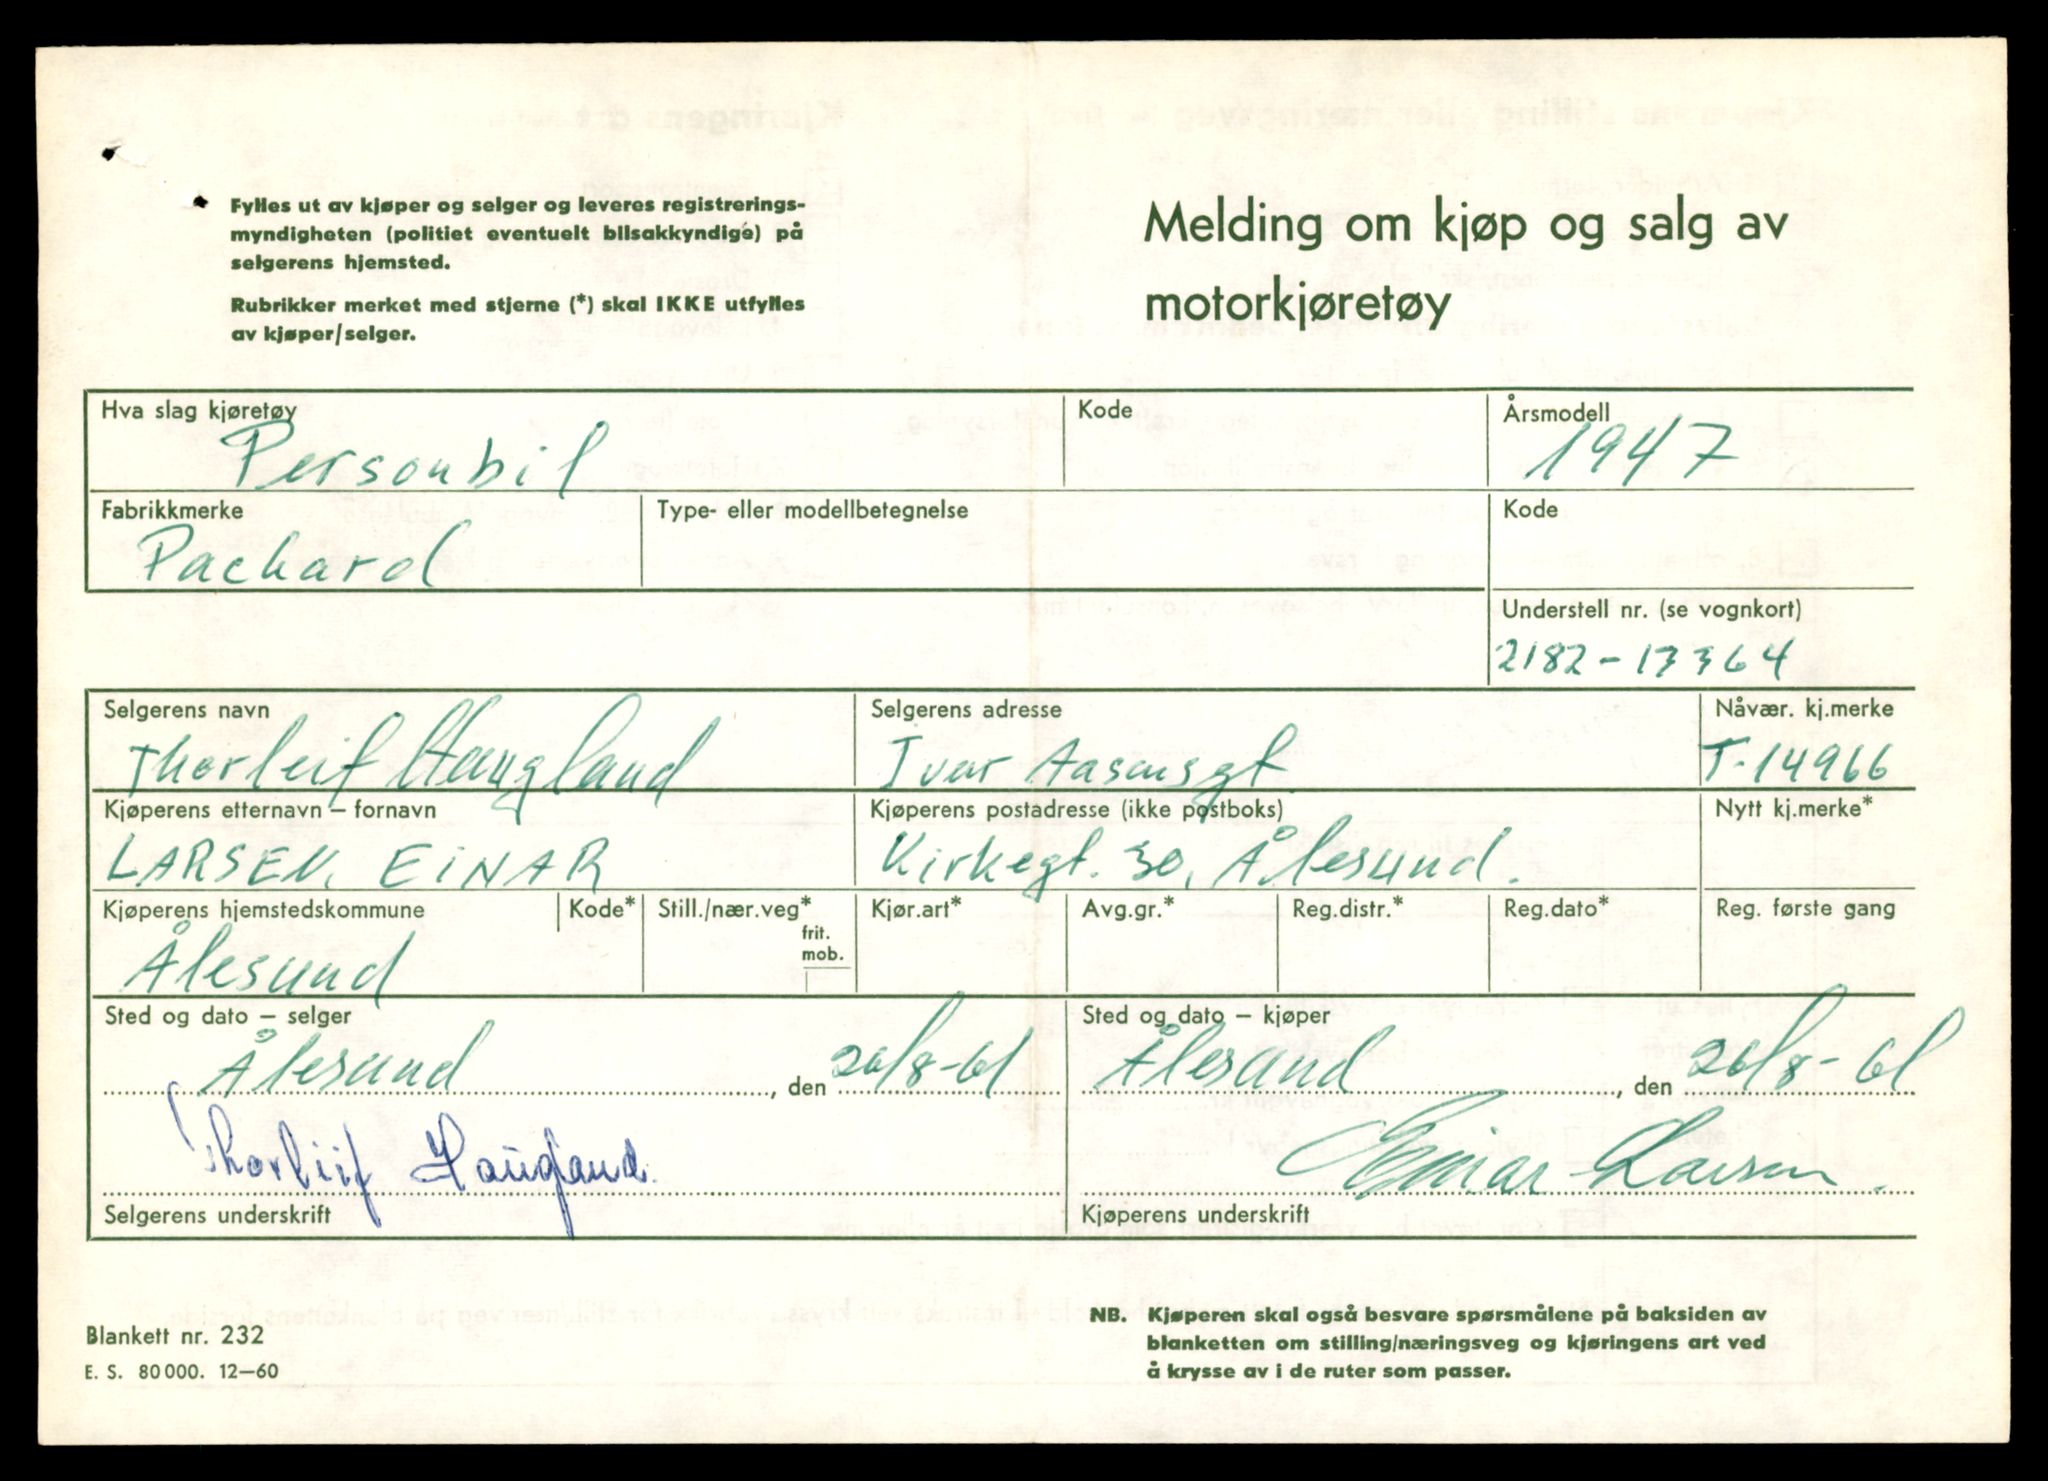 Fylles ut av kjøper og selger og leveres registrerings-
myndigheten (politiet eventuelt bilsakkyndige) på
selgerens hjemsted.
Rubrikker merket med stjerne (*) skal IKKE utfylles
av kjøper/selger.
Melding om kjøp og salg av
motorkjøretøy
Hva slag kjøretøy
Personbil
Kode
Årsmodell
1947
Fabrikkmerke
Packard
Type- eller modellbetegnelse
Kode
Understell nr. (se vognkort)
2182-13364
Selgerens navn
Thorleif Haugland
Selgerens adresse
Ivar Aasensgt
Nåvær. kj.merke
T-14966
Kjøperens etternavn – fornavn
LARSEN, EINAR
Kjøperens postadresse (ikke postboks)
Kirkegt. 30, Ålesund.
Nytt kj.merke*
Kjøperens hjemstedskommune
Ålesund
Kode*
Still./nær.veg*
frit.
mob.
Kjør.art*
Avg.gr.*
Reg.distr.*
Reg.dato*
Reg. første gang
Sted og dato – selger
Ålesund, den 20/8-61
Sted og dato – kjøper
Ålesund, den 20/8-61
Thorleif Haugland.
Selgerens underskrift
Einar Larsen.
Kjøperens underskrift
Blankett nr. 232
E. S. 80 000. 12–60
NB. Kjøperen skal også besvare spørsmålene på baksiden av
blanketten om stilling/næringsveg og kjøringens art ved
å krysse av i de ruter som passer.